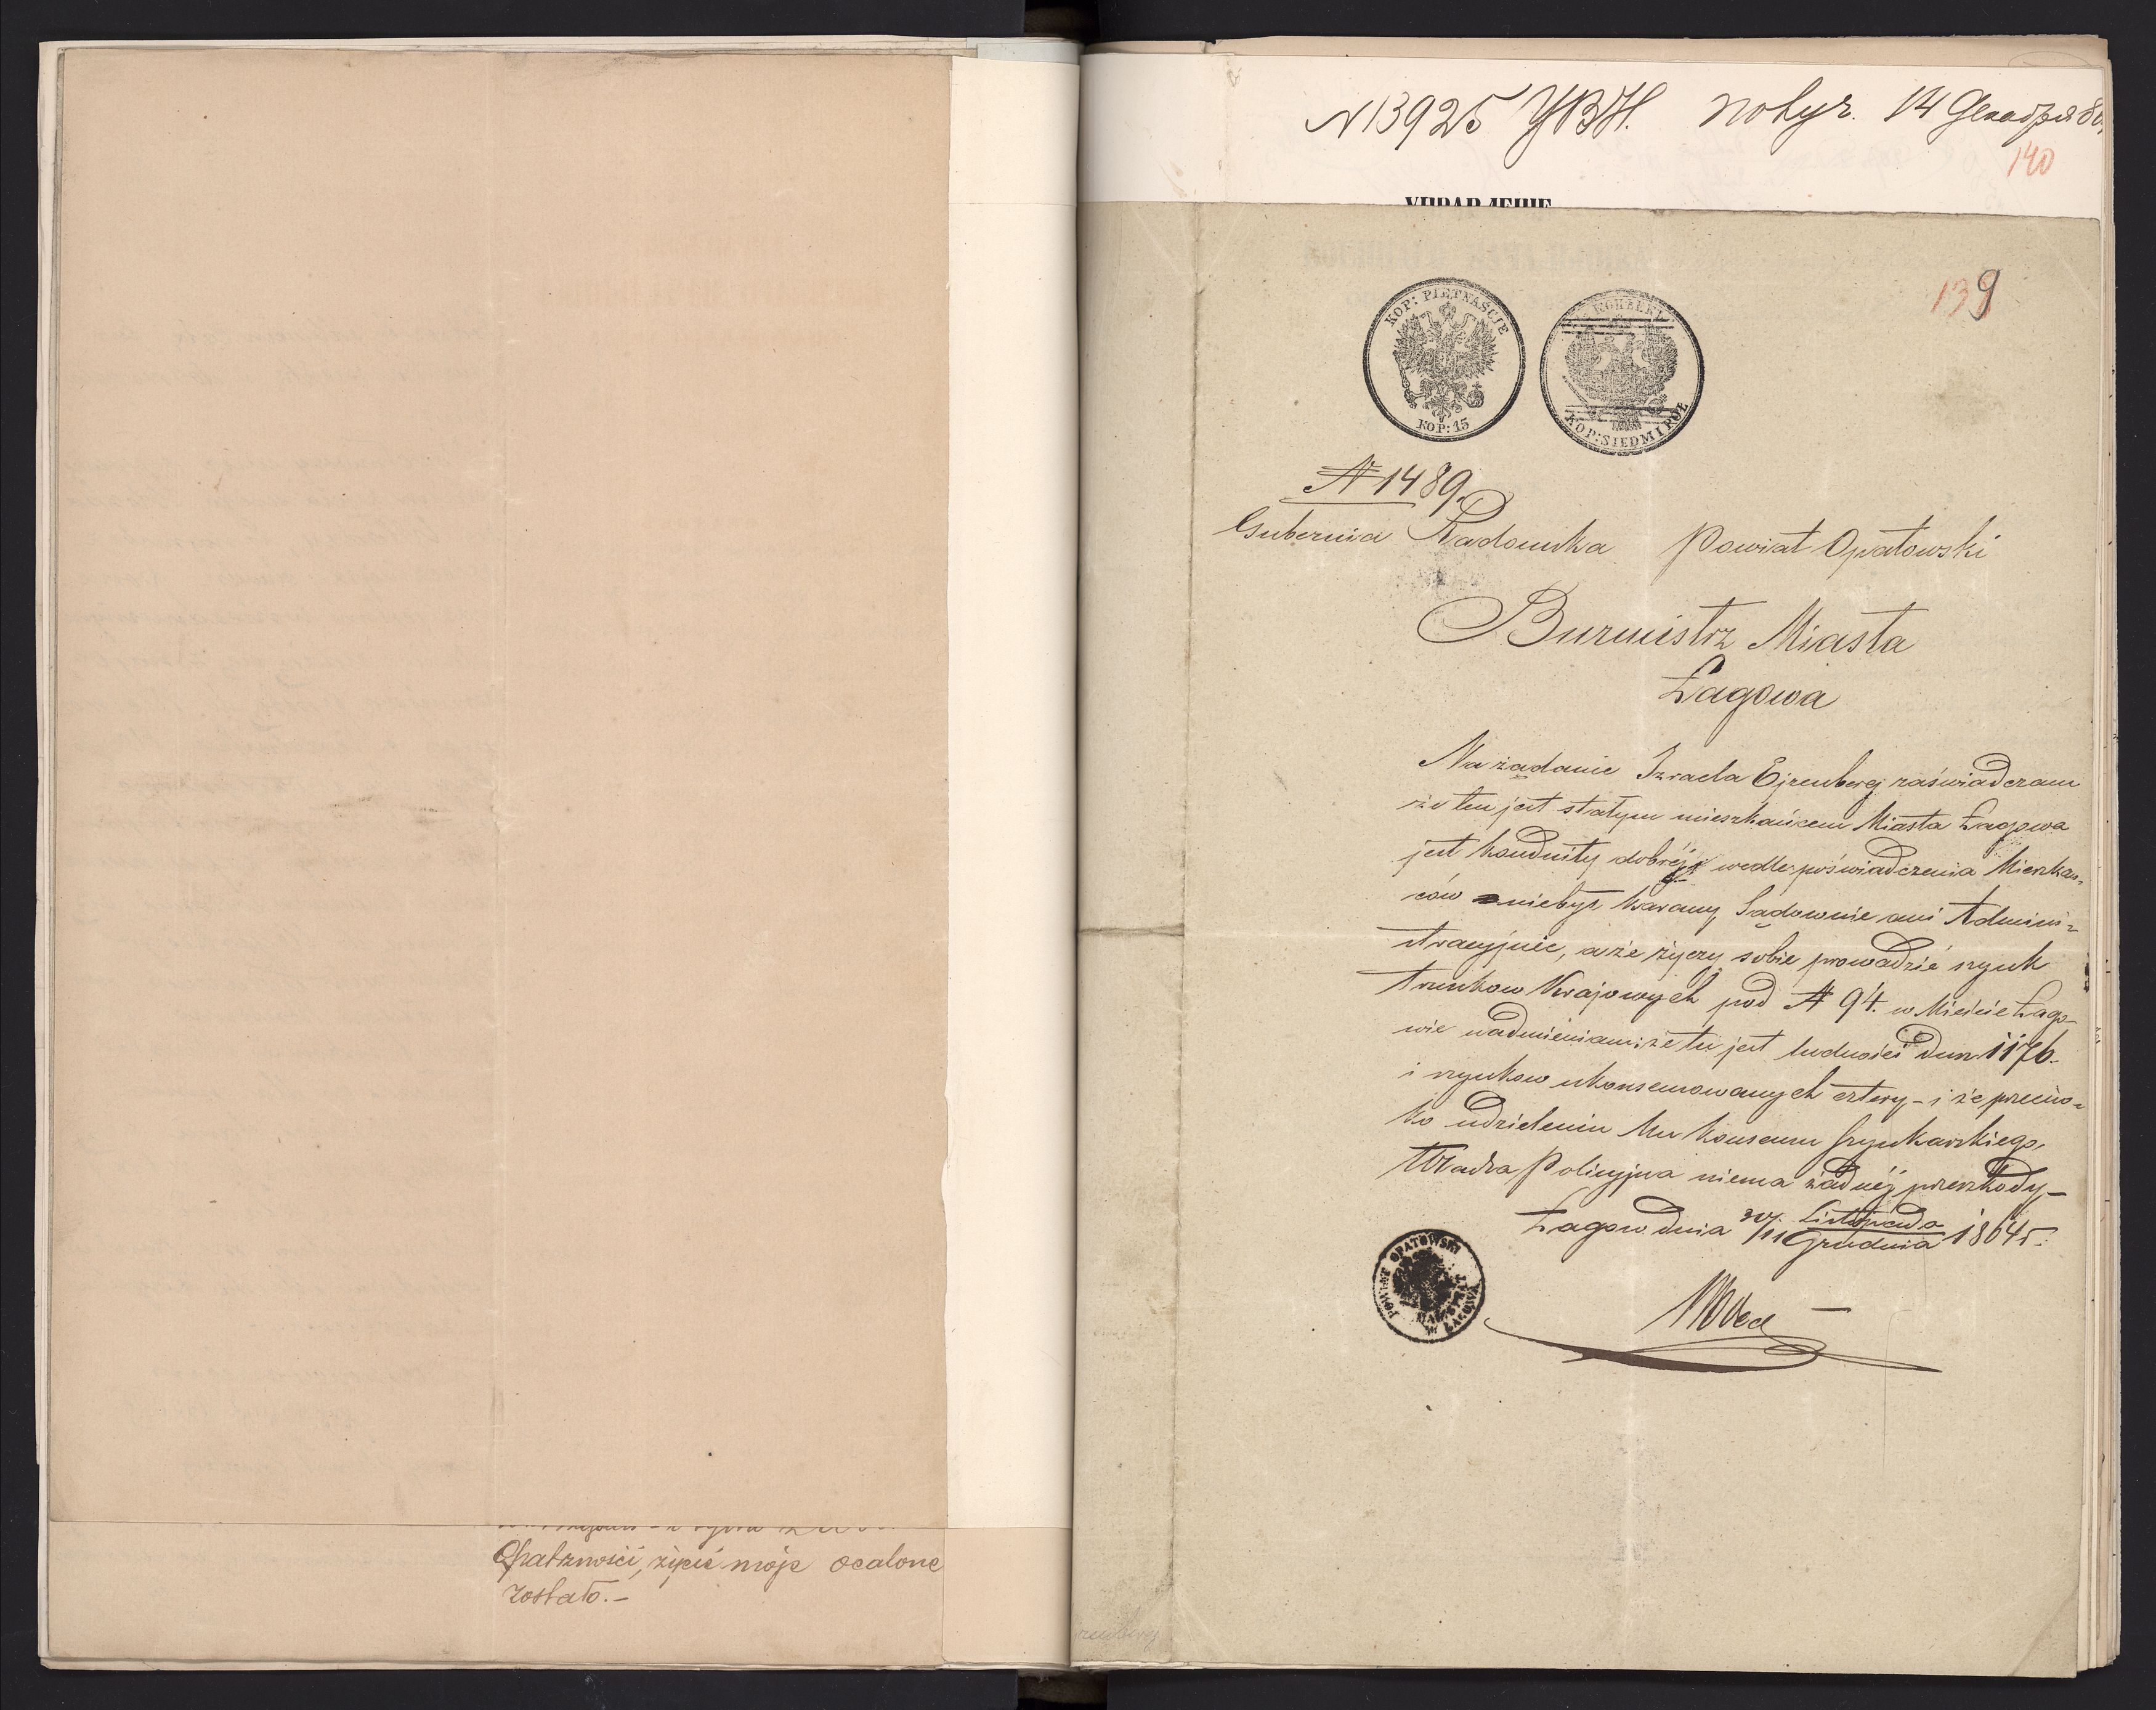 Opatrzności, życie moje ocalone
zostało.-
N 13925 УВН. получ. 14 Декабря 80
140
УПРАВЛЕНІЕ
139
KOP: PIĘTNAŚCIE
KOP: 15
KOP: SIEDM I PÓŁ
N 1489.
Gubernia Radomska Powiat Opatowski
Burmistrz Miasta
Łagowa
Na żądanie Izraela Ejzenberg zaświadczam
że ten jest stałym mieszkańcem Miasta Łagowa
jest konduity dobréj wedle poświadczenia Mieszkań-
ców niebył karany Sądownie ani Admini-
stracyjnie, a że życzy sobie prowadzić szynk
trunkow Krajowych pod N 94. w Mieście Łago-
wie nadmieniam; że tu jest ludności dusz 1176.
i szynkow ukonsensowanych cztery - i że przeciw-
ko udzieleniu Mu konsensu szynkarskiego,
Władza Policyjna niema żadnéj przeszkody -
Łagow dnia 30/11 Listopada Grudnia 1864 r.
POWIAT OPATOWSKI
MAGISTRAT
W ŁAGOWIE